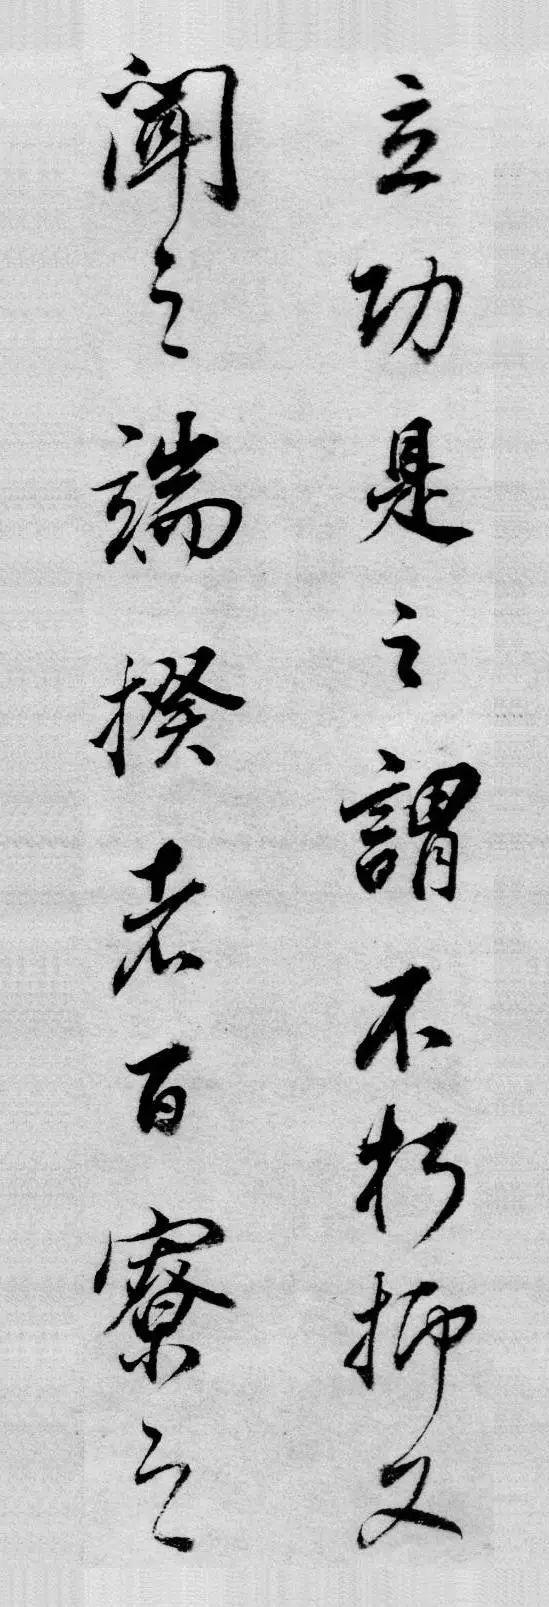 立功是之謂不朽抑又
聞之端揆者百寮之